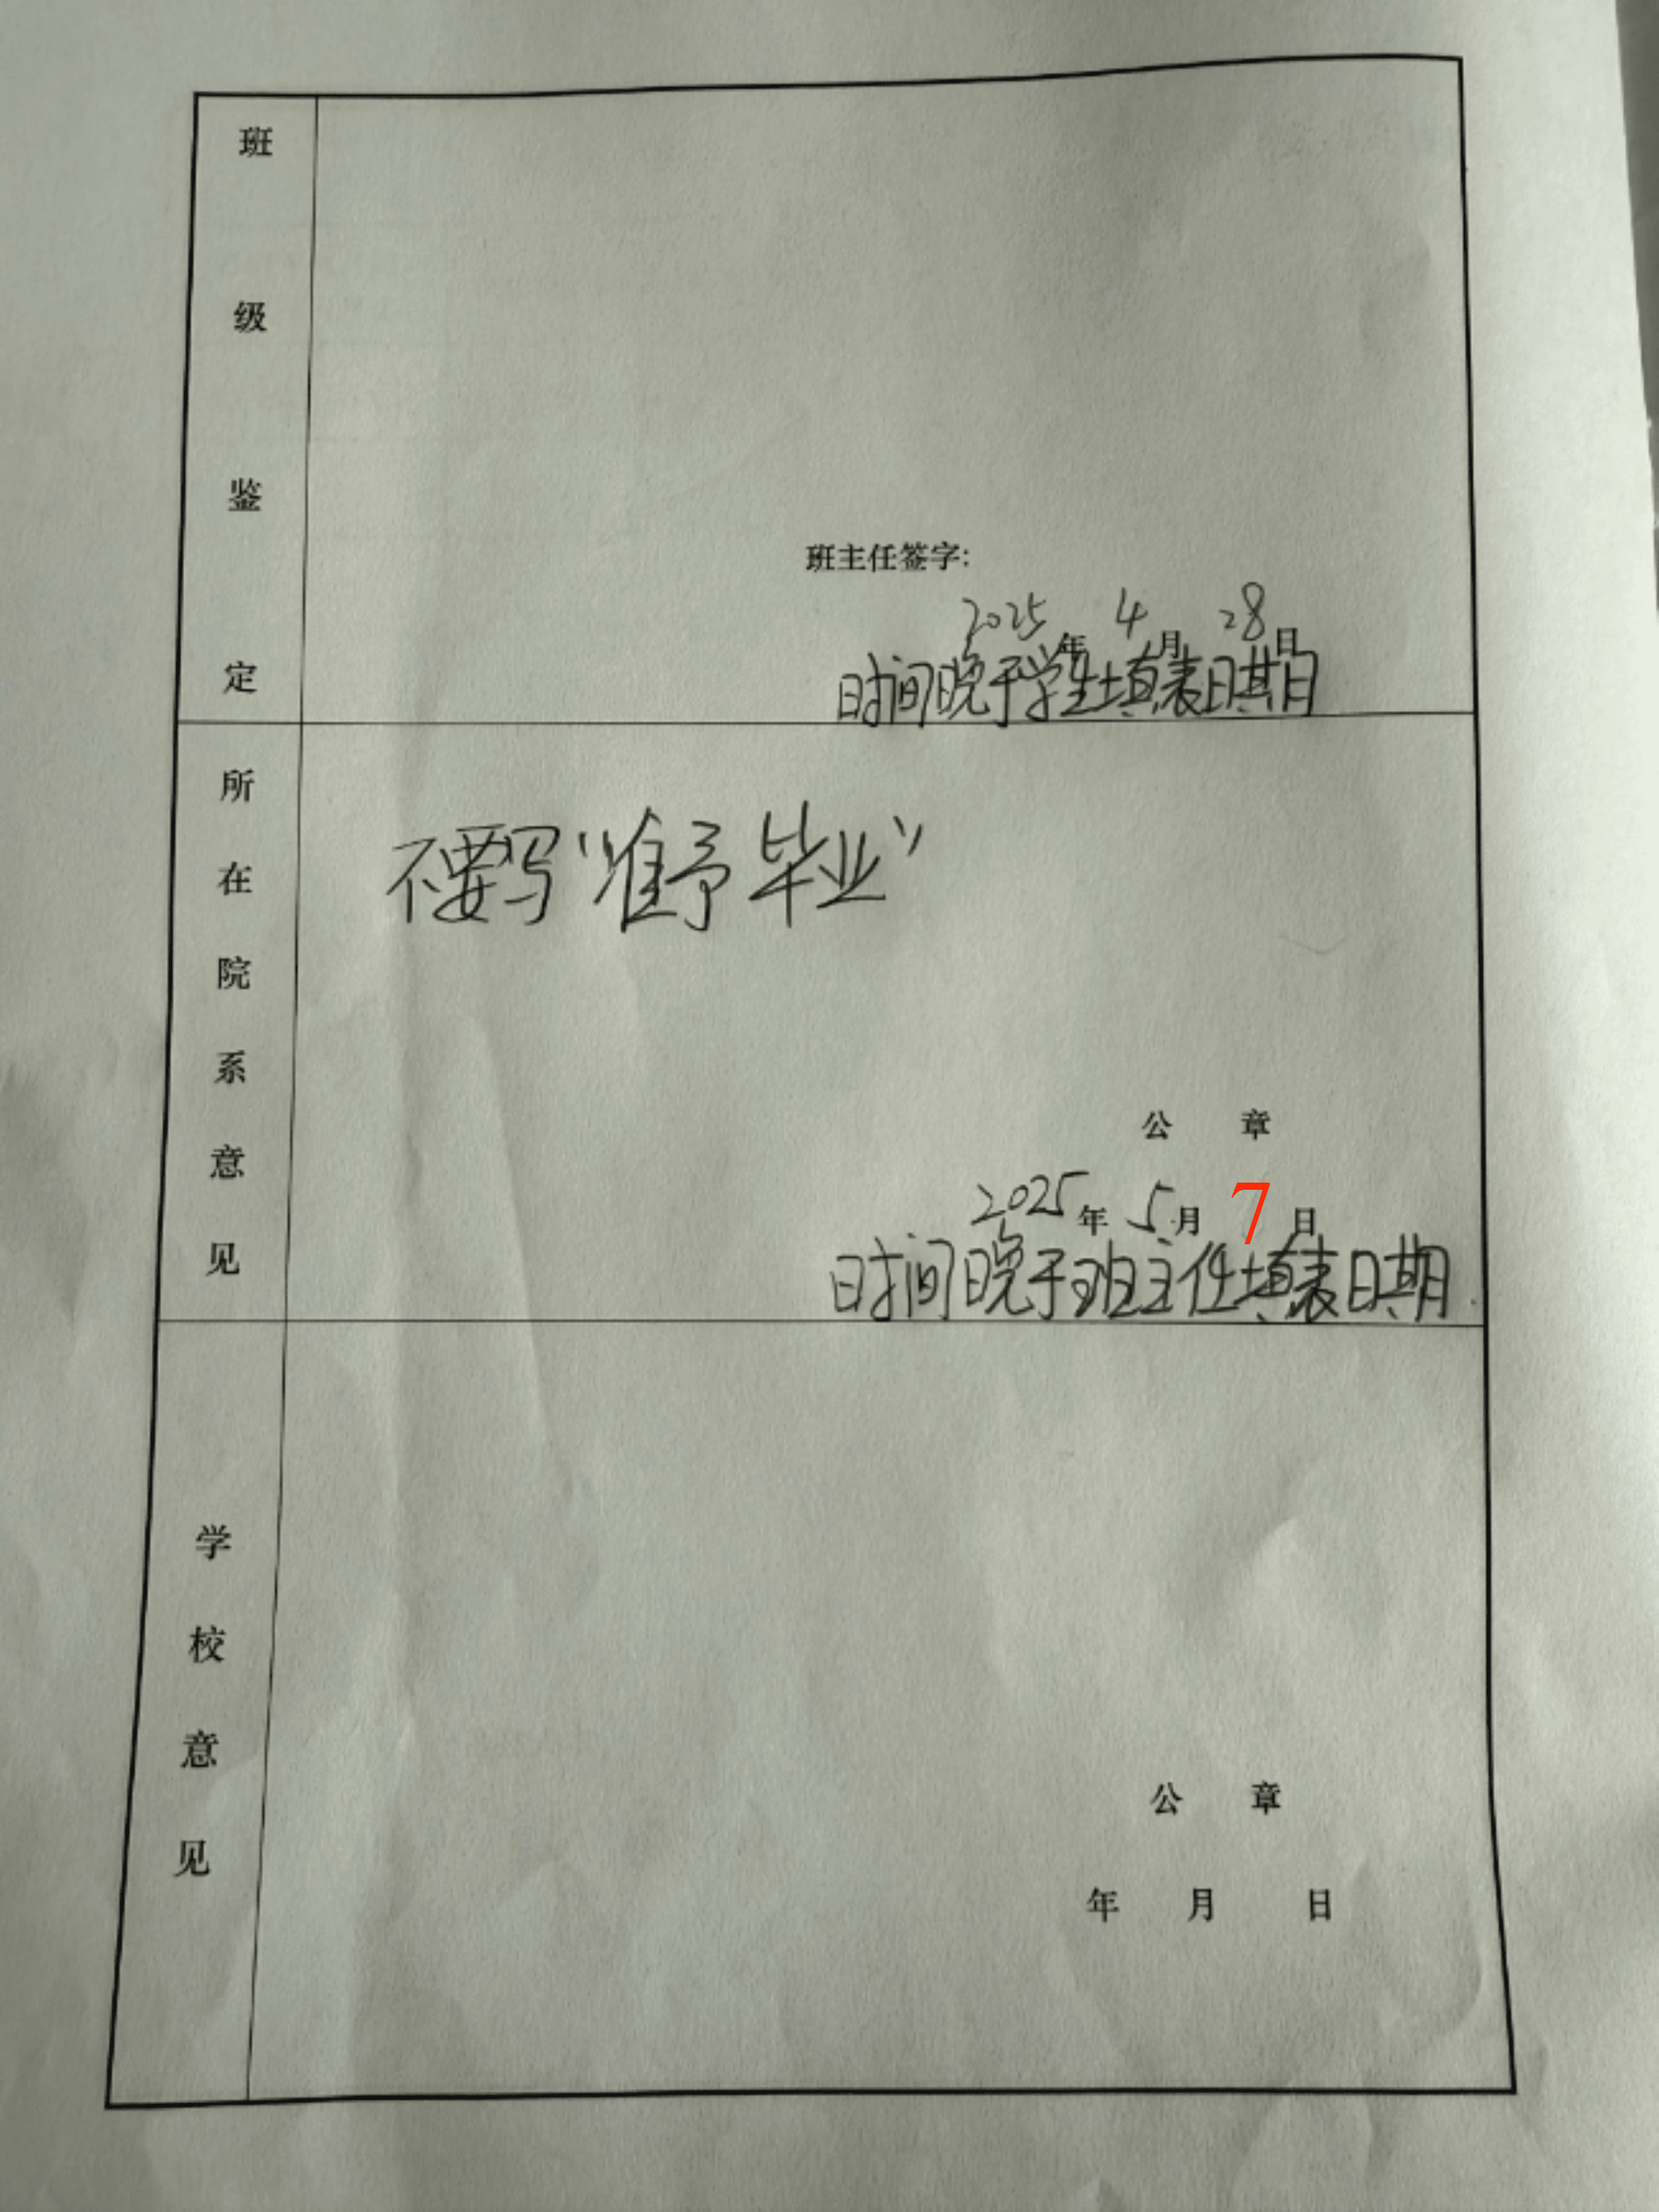 班级鉴定
班主任签字：
2025年4月28日
时间晚于学生填表日期
所在院系意见
不要写“准予毕业”
公章
2025年5月7日
时间晚于班主任填表日期
学校意见
公章
年月日